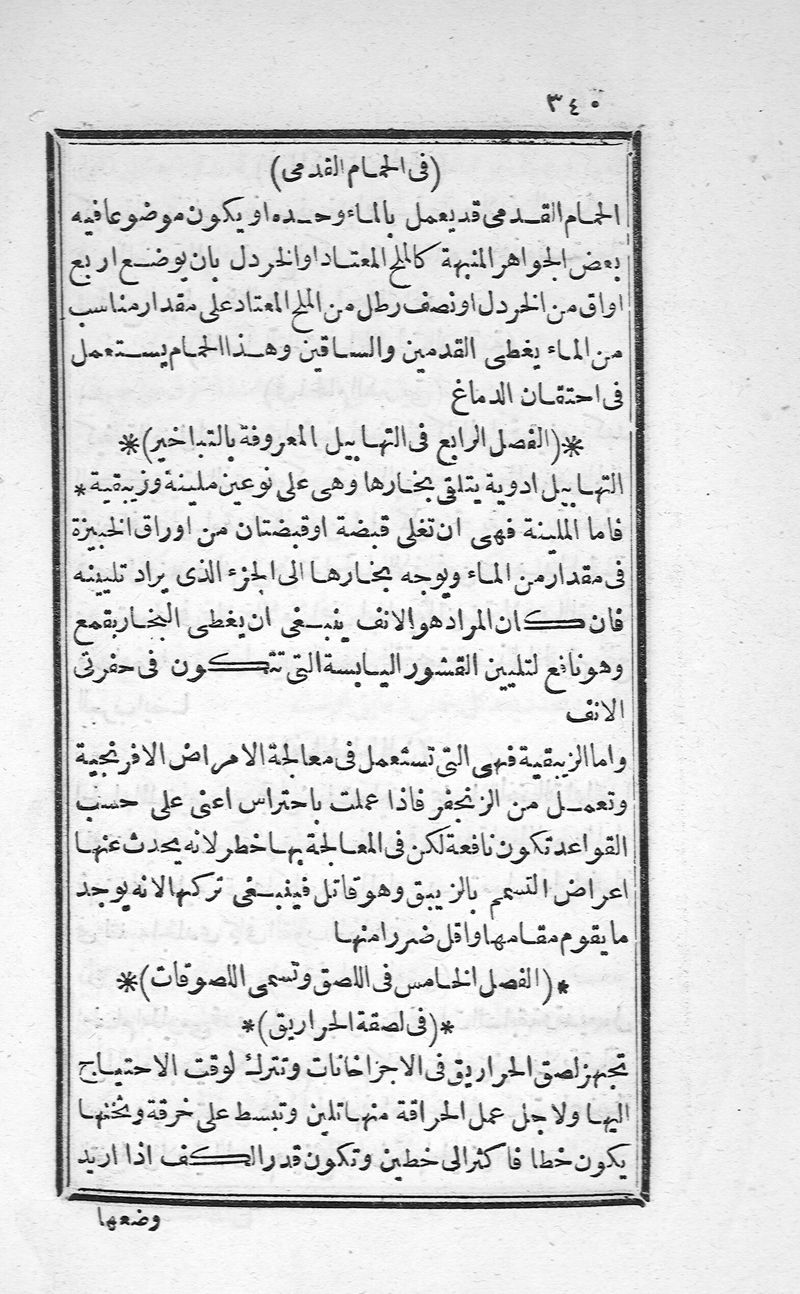 ٣٤٠
(فى الحمام القدمى)
الحمام القدمى قد يعمل بالماء وحده او يكون موضوعا فيه
بعض الجواهر المنبهة كالملح المعتاد او الخردل بان يوضع اربع
اواق من الخردل او نصف رطل من الملح المعتاد على مقدار مناسب
من الماء يغطى القدمين والساقين وهذا الحمام يستعمل
فى احتقان الدماغ
*(الفصل الرابع فى التهابيل المعروفة بالتباخير)*
التهابيل ادوية يتلقى بخارها وهى على نوعين ملينة وزيبقية *
فاما الملينة فهى ان تغلى قبضة او قبضتان من اوراق الخبيزة
فى مقدار من الماء ويوجه بخارها الى الجزء الذى يراد تليينه
فان كان المراد هو الانف ينبغى ان يغطى البخار بقمع
وهو نافع لتليين القشور اليابسة التى تتكون فى حفرتى
الانف
واما الزيبقية فهى التى تستعمل فى معالجة الامراض الافرنجية
وتعمل من الزنجفر فاذا عملت باحتراس اعنى على حسب
القواعد تكون نافعة لكن فى المعالجة بها خطر لانه يحدث عنها
اعراض التسمم بالزيبق وهو قاتل فينبغى تركها لانه يوجد
ما يقوم مقامها واقل ضررا منها
*(الفصل الخامس فى اللصق وتسمى اللصوقات)*
*(فى لصقة الحراريق)*
تجهز لصق الحراريق فى الاجزاخانات وتترك لوقت الاحتياج
اليها ولاجل عمل الحراقة منها تلين وتبسط على خرقة وثخنها
يكون خطا فاكثر الى خطين وتكون قدر الكف اذا اريد
وضعها